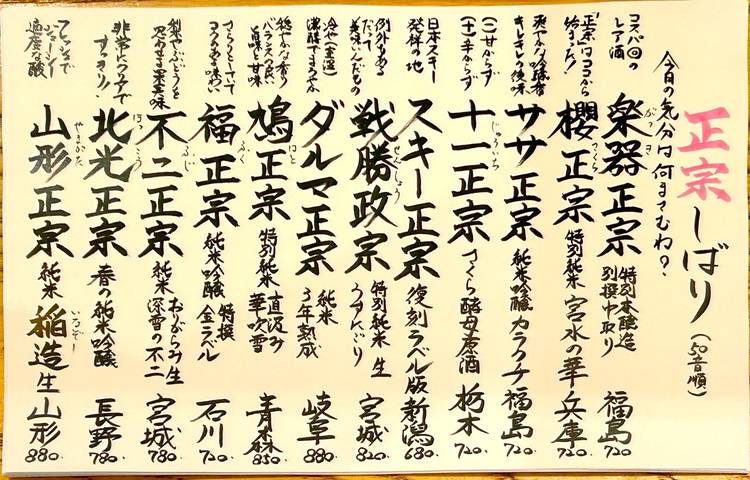 正宗しばり(50音順)
今日の気分は何まさむね?
コスパ◎の
レア酒
楽器正宗 特別本醸造
別撰中取り 福島 720.
がっき
「正宗」はココから
始まった!
櫻正宗 特別純米 宮水の華 兵庫 720.
さくら
爽やかな吟醸香
キレキレの後味
ササ正宗 純米吟醸 カラクチ 福島 720.
(二)甘からず
(十)辛からず
十一正宗 さくら酵母原酒 栃木 720.
じゅういち
日本スキー
発祥の地
スキー正宗 復刻ラベル版 新潟 680.
例外もある
だって
美味いんだもの
戦勝政宗 特別純米 生
うすにごり 宮城 820.
せんしょう
冷や(室温)
濃醇でまろやか
ダルマ正宗 純米
3年熟成 岐阜 880.
穏やかな香り
バランスの良い
旨味と甘味
鳩正宗 特別純米 直汲み
華吹雪 青森 850.
はと
さらりとしていて
コクのある味わい
福正宗 純米吟醸 特撰
金ラベル 石川 720.
ふく
梨やぶどうを
思わせる果実味
不二正宗 純米 おりがらみ生
深雪の不二 宮城 780.
ふじ
非常にクリアで
すっきり!
北光正宗 春の純米吟醸 長野 780.
ほっこう
フレッシュで
ジューシー
適度な酸
山形正宗 純米 稲造 生 山形 880.
やまがた
いなぞー